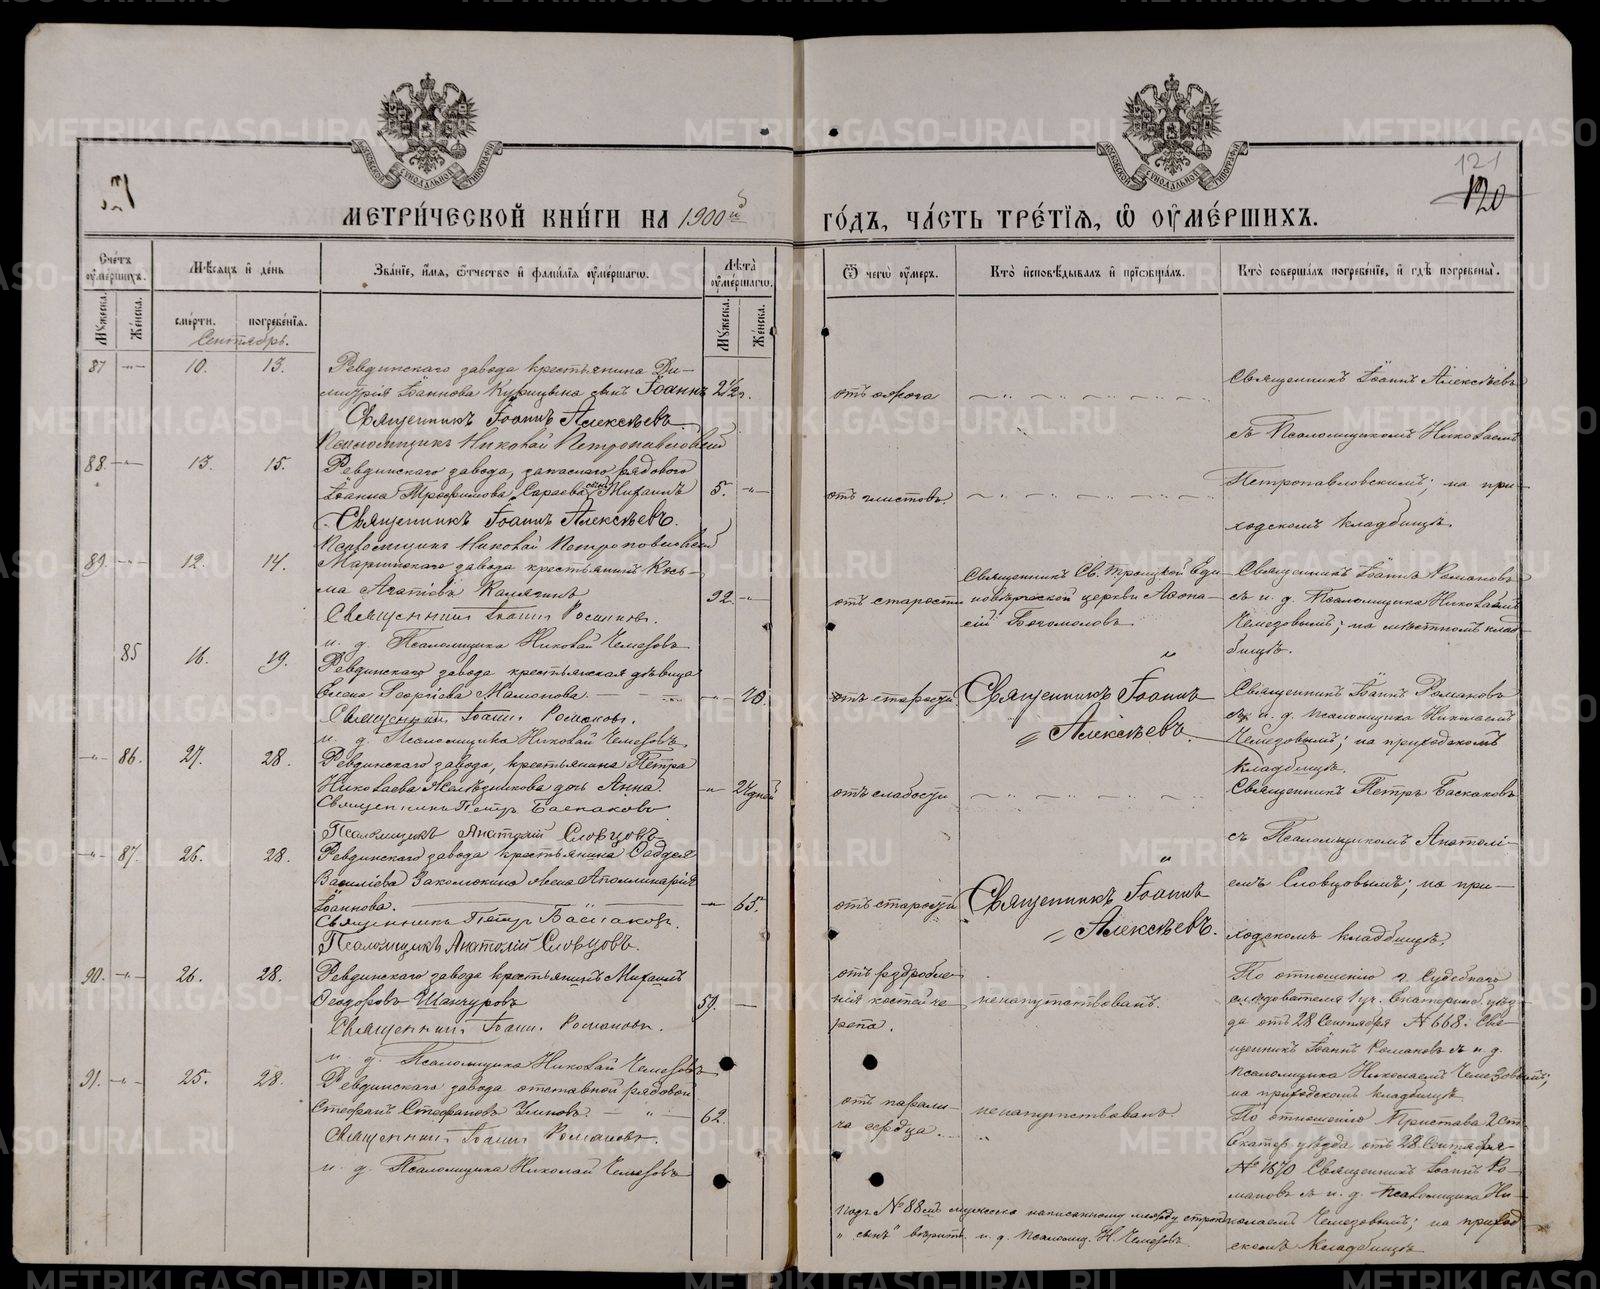 121
120
МЕТРИ́ЧЕСКОЙ КНИ́ГИ НА 1900й
ГО́ДЪ, ЧА́СТЬ ТРЕ́ТЇѦ, Ѡ҆ ОУ҆МЕ́РШИХЪ.
Сче́тъ оу҆ме́ршихъ.
Мѣ́сѧцъ и҆ де́нь
Зва́нїе, и҆́мѧ, ѻ҆́тчество и҆ фами́лїѧ оу҆ме́ршагѡ.
Лѣ́та оу҆ме́ршагѡ.
Ѿ чегѡ̀ оу҆́меръ.
Кто̀ и҆сповѣ́дывалъ и҆ прїѡбща́лъ.
Кто̀ соверша́лъ погребе́нїе, и҆ гдѣ̀ погребены̀.
Мꙋ́жеска.
Же́нска.
сме́рти.
погребе́нїѧ.
Мꙋ́жеска.
Же́нска.
Сентябрь.
87 -"- 10. 13.
Ревдинскаго завода крестьянина Ди-
митрія Іоаннова Курицына сынъ Іоаннъ 2½г.
Священникъ Іоаннъ Алексѣевъ
Псаломщикъ Николай Петропавловскій
отъ ожога
Священникъ Іоаннъ Алексѣевъ
съ Псаломщикомъ Николаемъ
88. -"- 13. 15.
Ревдинскаго завода, запаснаго рядового
Іоанна Трофимова Сараева сынъ Михаилъ 5. -"-
Священникъ Іоаннъ Алексѣевъ.
Псаломщикъ Николай Петропавловскій
отъ глистовъ.
Петропавловскимъ; на при-
ходскомъ кладбищѣ.
89. -"- 12. 14.
Маріинскаго завода крестьянинъ Кось-
ма Агапіовъ Калягинъ 92. -"-
Священникъ Іоаннъ Романовъ.
и. д. Псаломщика Николай Чемезовъ
отъ старости
Священникъ Св. Троицкой Еди-
новѣрческой церкви Аѳона-
сій Богомоловъ
Священникъ Іоаннъ Романовъ
съ и. д. Псаломщика Николаемъ
Чемезовымъ; на мѣстномъ клад-
бищѣ.
85 16. 19.
Ревдинскаго завода крестьянская дѣвица
Елена Георгіева Мамонова. -"- 70.
Священникъ Іоаннъ Романовъ.
и. д. Псаломщика Николай Чемезовъ.
отъ старости.
Священникъ Іоаннъ
Алексѣевъ.
Священникъ Іоаннъ Романовъ
съ и. д. псаломщика Николаемъ
Чемезовымъ; на приходскомъ
кладбищѣ.
-"- 86. 27. 28.
Ревдинскаго завода, крестьянина Петра
Николаева Желѣзникова дочь Анна. -"- 24 дней
Священникъ Петръ Баскаковъ
Псаломщикъ Анатолій Словцовъ
отъ слабости
Священникъ Петръ Баскаковъ
съ Псаломщикомъ Анатолі-
-"- 87. 26. 28.
Ревдинскаго завода крестьянина Ѳаддея
Василіева Закомокина жена Аполлинарія
Іоаннова. -"- 65.
Священникъ Петръ Баскаковъ.
Псаломщикъ Анатолій Словцовъ.
отъ старости
Священникъ Іоаннъ
Алексѣевъ.
емъ Словцовымъ; на при-
ходскомъ кладбищѣ.
90. -"- 26. 28.
Ревдинскаго завода крестьянинъ Михаилъ
Ѳеодоровъ Шангуровъ 59. —
Священникъ Іоаннъ Романовъ.
и. д. Псаломщика Николай Чемезовъ
отъ раздробле-
нія костей че
репа.
не напутствованъ.
По отношенію г. Судебнаго
слѣдователя 1 уч. Екатеринб. уѣз-
да отъ 28 Сентября № 668. Свя-
щенникъ Іоаннъ Романовъ съ и. д.
псаломщика Николаемъ Чемезовымъ;
на приходскомъ кладбищѣ.
91. -"- 25. 28.
Ревдинскаго завода отставной рядовой
Стефанъ Стефановъ Умновъ. 62.
Священникъ Іоаннъ Романовъ.
и. д. Псаломщика Николай Чемезовъ
отъ парали-
ча сердца.
не напутствованъ.
По отношенію Пристава 2 ст.
Екатер. уѣзда отъ 28 Сентября
№ 1870 Священникъ Іоаннъ Ро-
мановъ съ и. д. псаломщика Ни-
колаемъ Чемезовымъ; на приход
скомъ кладбищѣ
подъ № 88 мужеска написанному между строкъ
"сынъ" вѣрить. и. д. псаломщ. Н. Чемезовъ.
METRIKI.GASO-URAL.RU